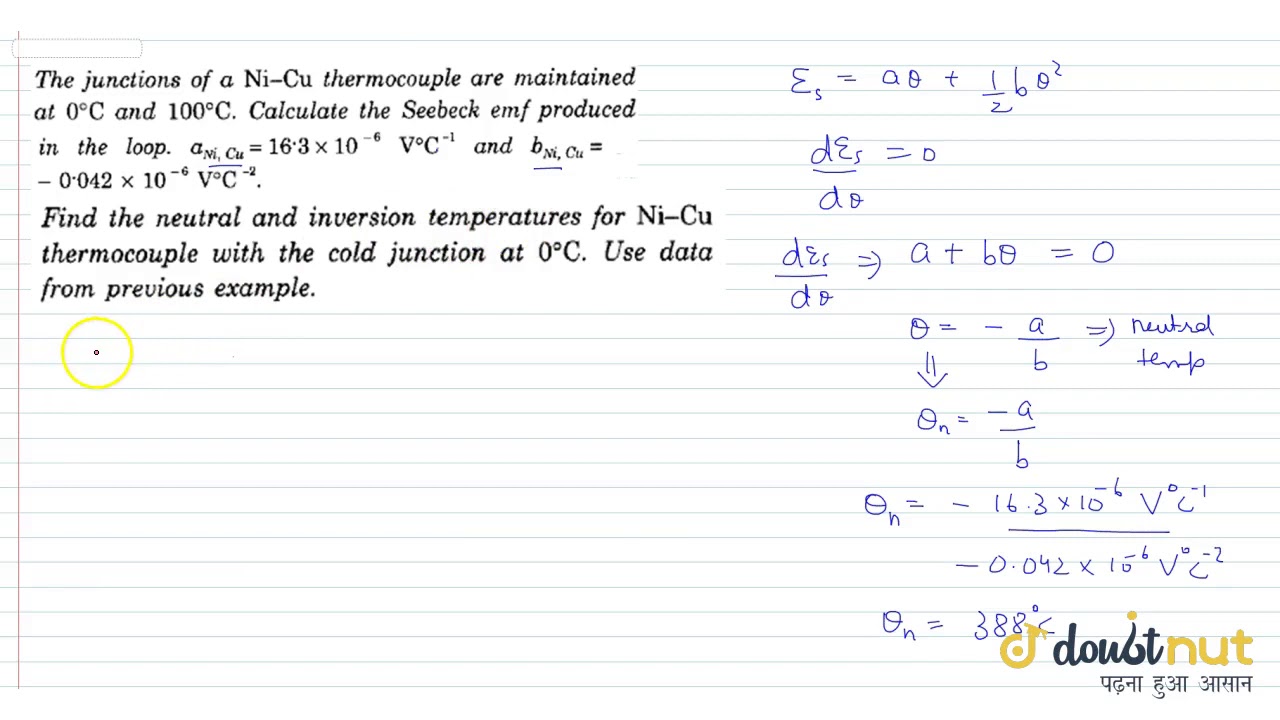 The junctions of a Ni–Cu thermocouple are maintained
at 0°C and 100°C. Calculate the Seebeck emf produced
in the loop. a_Ni, Cu = 16·3 × 10⁻⁶ V°C⁻¹ and b_Ni, Cu =
– 0·042 × 10⁻⁶ V°C⁻².
Find the neutral and inversion temperatures for Ni–Cu
thermocouple with the cold junction at 0°C. Use data
from previous example.
Ɛₛ = aθ + 1/2 bθ²
dƐₛ/dθ = 0
dƐₛ/dθ ⇒ a + bθ = 0
θ = - a/b ⇒ neutral
temp
⇓
θₙ = -a/b
θₙ = - 16.3 × 10⁻⁶ V°C⁻¹
- 0.042 × 10⁻⁶ V°C⁻²
θₙ = 388°C
doubtnut
पढ़ना हुआ आसान